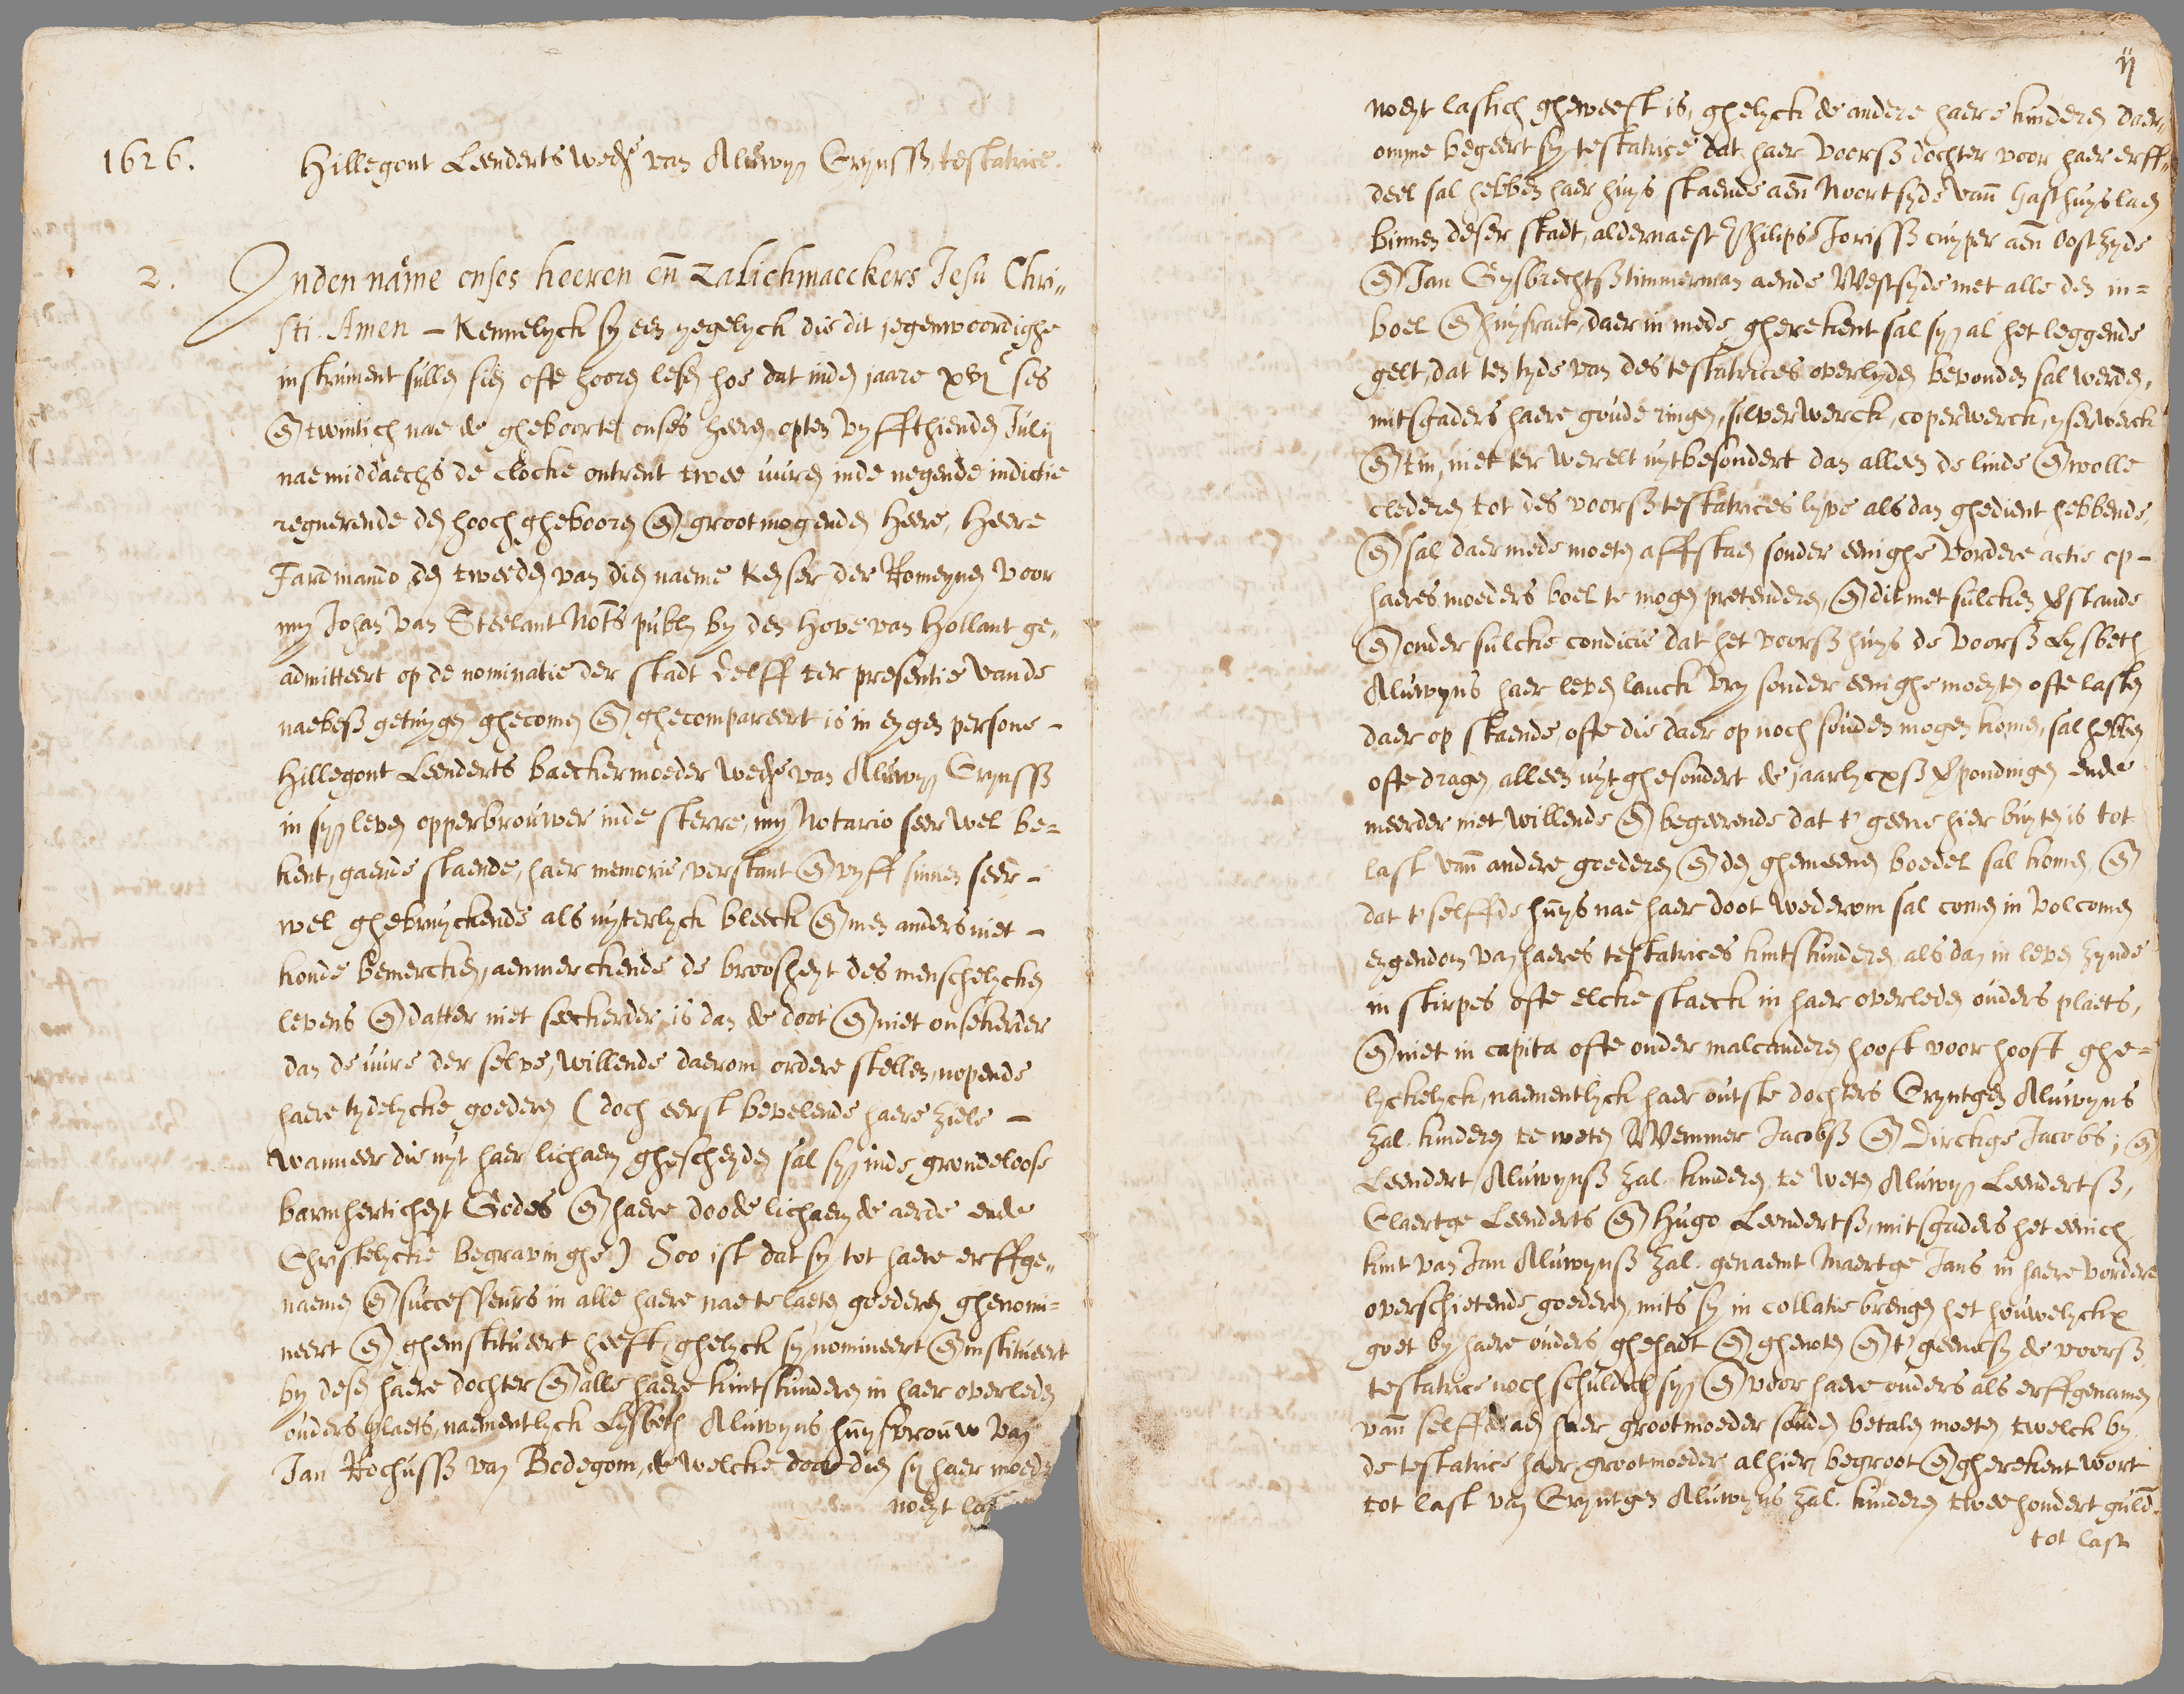 1626. Hillegont Leenderts wede van Aluwyn Crynssz, testatrice.
2. Inden name onses heeren en zalichmaeckers Jesu Chri„
sti. Amen – Kennelyck sy een yegelyck die dit jegenwoordighe
instrument sullen sien ofte hooren lesen hoe dat inden jaare xvjc ses
en twintich nae de gheboorte onses heeren opten vyffthienden Julij
naemiddaechs de clocke ontrent twee uuren inde negende indictie
regnerende den hooch ghebooren en grootmogenden Heere, Heere
Fardinando den tweeden van dien naeme Keyser der Romeynen voor
my Johan van Steelant Nots publ by den Hove van Hollant ge„
admitteert op de nominatie der stadt Delff ter presentie vande
naebesz getuygen ghecomen en ghecompareert is in eygen persone –
Hillegont Leenderts baeckermoeder wede van Aluwyn Crynssz
in syn leven opperbrouwer inde sterre, my Notario seer wel be=
kent, gaende staende, haer memorie, verstant en vyff sinnen seer –
wel ghebruyckende als uyterlyck bleeck en men anders niet –
konde bemercken, aenmerckende de broosheyt des menschelycken
levens en datter niet seeckerder is dan de doot en niet onsekerder
dan de uure der selve, willende daerom ordere stellen nopende
haere tydelycke goederen (doch eerst bevelende haere ziele –
wanneer die uyt haer lichaem ghescheyden sal syn inde grondeloose
barmherticheyt Godes en haere doode lichaem de aerde ende
Christelycke begravinghe) Soo ist dat sy tot haere erffge„
naemen en successeurs in alle haere nae te laeten goederen ghenomi=
neert en gheinstitueert heeft, ghelyck sy nomineert en institueert
by desen haere dochter en alle haere kintskinderen in haer overleden
ouders plaets, naementlyck Lysbeth Aluwyns huysvrouw van
Jan Rochussz van Bodegom, de welcke door dien sy haer moeder
noeyt las
ij
noeyt lastich gheweest is, ghelyck de andere haere kinderen daer„
omme begeert sy testatrice dat haer voorsz dochter voor haer erff„
deel sal hebben haer huys staende aen Noortsyde van Gasthuyslaen
binnen deser stadt, aldernaest Philips Jorissz cuyper aen Oostzyde
en Jan Gysbrechtsz timmerman aende Westsyde met alle den in=
boel en huysraet, daer in mede gherekent sal syn al het leggende
gelt, dat ten tyde van des testatrices overlyden bevonden sal werden,
mitsgaders haere goude ringen, silverwerck, coperwerck, yserwerck
en tin, niet ter werelt uytbesondert dan alleen de linde en wolle
clederen tot des voorsz testatrices lyve als dan ghedient hebbende,
en sal daer mede moeten affstaen sonder eenighe vordere actie op –
haeres moeders boel te mogen pretenderen, en dit met sulcken verstande
en onder sulcke condicie dat het voorsz huys de voorsz Lysbeth
Aluwyns haer leven lanck vry sonder eenighe moeyten ofte lasten
daer op staende, ofte die daer op noch souden mogen komen, sal hebben
ofte dragen, alleen uytghesondert de jaarlycxsz verpondingen ende
meerder niet, willende en begeerende dat t' geene hier buyten is tot
last van andere goederen en den ghemeenen boedel sal komen en
dat t' selffde huys nae haer doot wederom sal comen in volcomen
eygendom van haeres testatrices kintskinderen als dan in leven zynde
in stirpes ofte elcke staeck in haer overleden ouders plaets,
en niet in capita ofte onder malcanderen hooft voor hooft ghe=
lyckelyck, naementlyck haer outste dochters Cryntgen Aluwyns
zal. kinderen te weten Wemmer Jacobsz en Dirckge Jacobs; en
Leendert Aluwynsz zal. kinderen te weten Aluwyn Leendertsz,
Claertge Leenderts en Hugo Leendertsz, mitsgaders het eenich
kint van Jan Aluwynsz zal. genaemt Maertge Jans in haere vordere
overschietende goederen, mits sy in collatie brengen het houwelyckx
goet by haere ouders ghehadt en ghenoten en t' geene sy de voorsz
testatrice noch schuldich syn en voor haere ouders als erffgenamen
van selffde aen haer grootmoeder souden betalen moeten, twelck by
de testatrice haer grootmoeder alhier begroot en gherekent wort
tot last van Cryntgen Aluwyns zal. kinderen twee hondert guld.
tot last